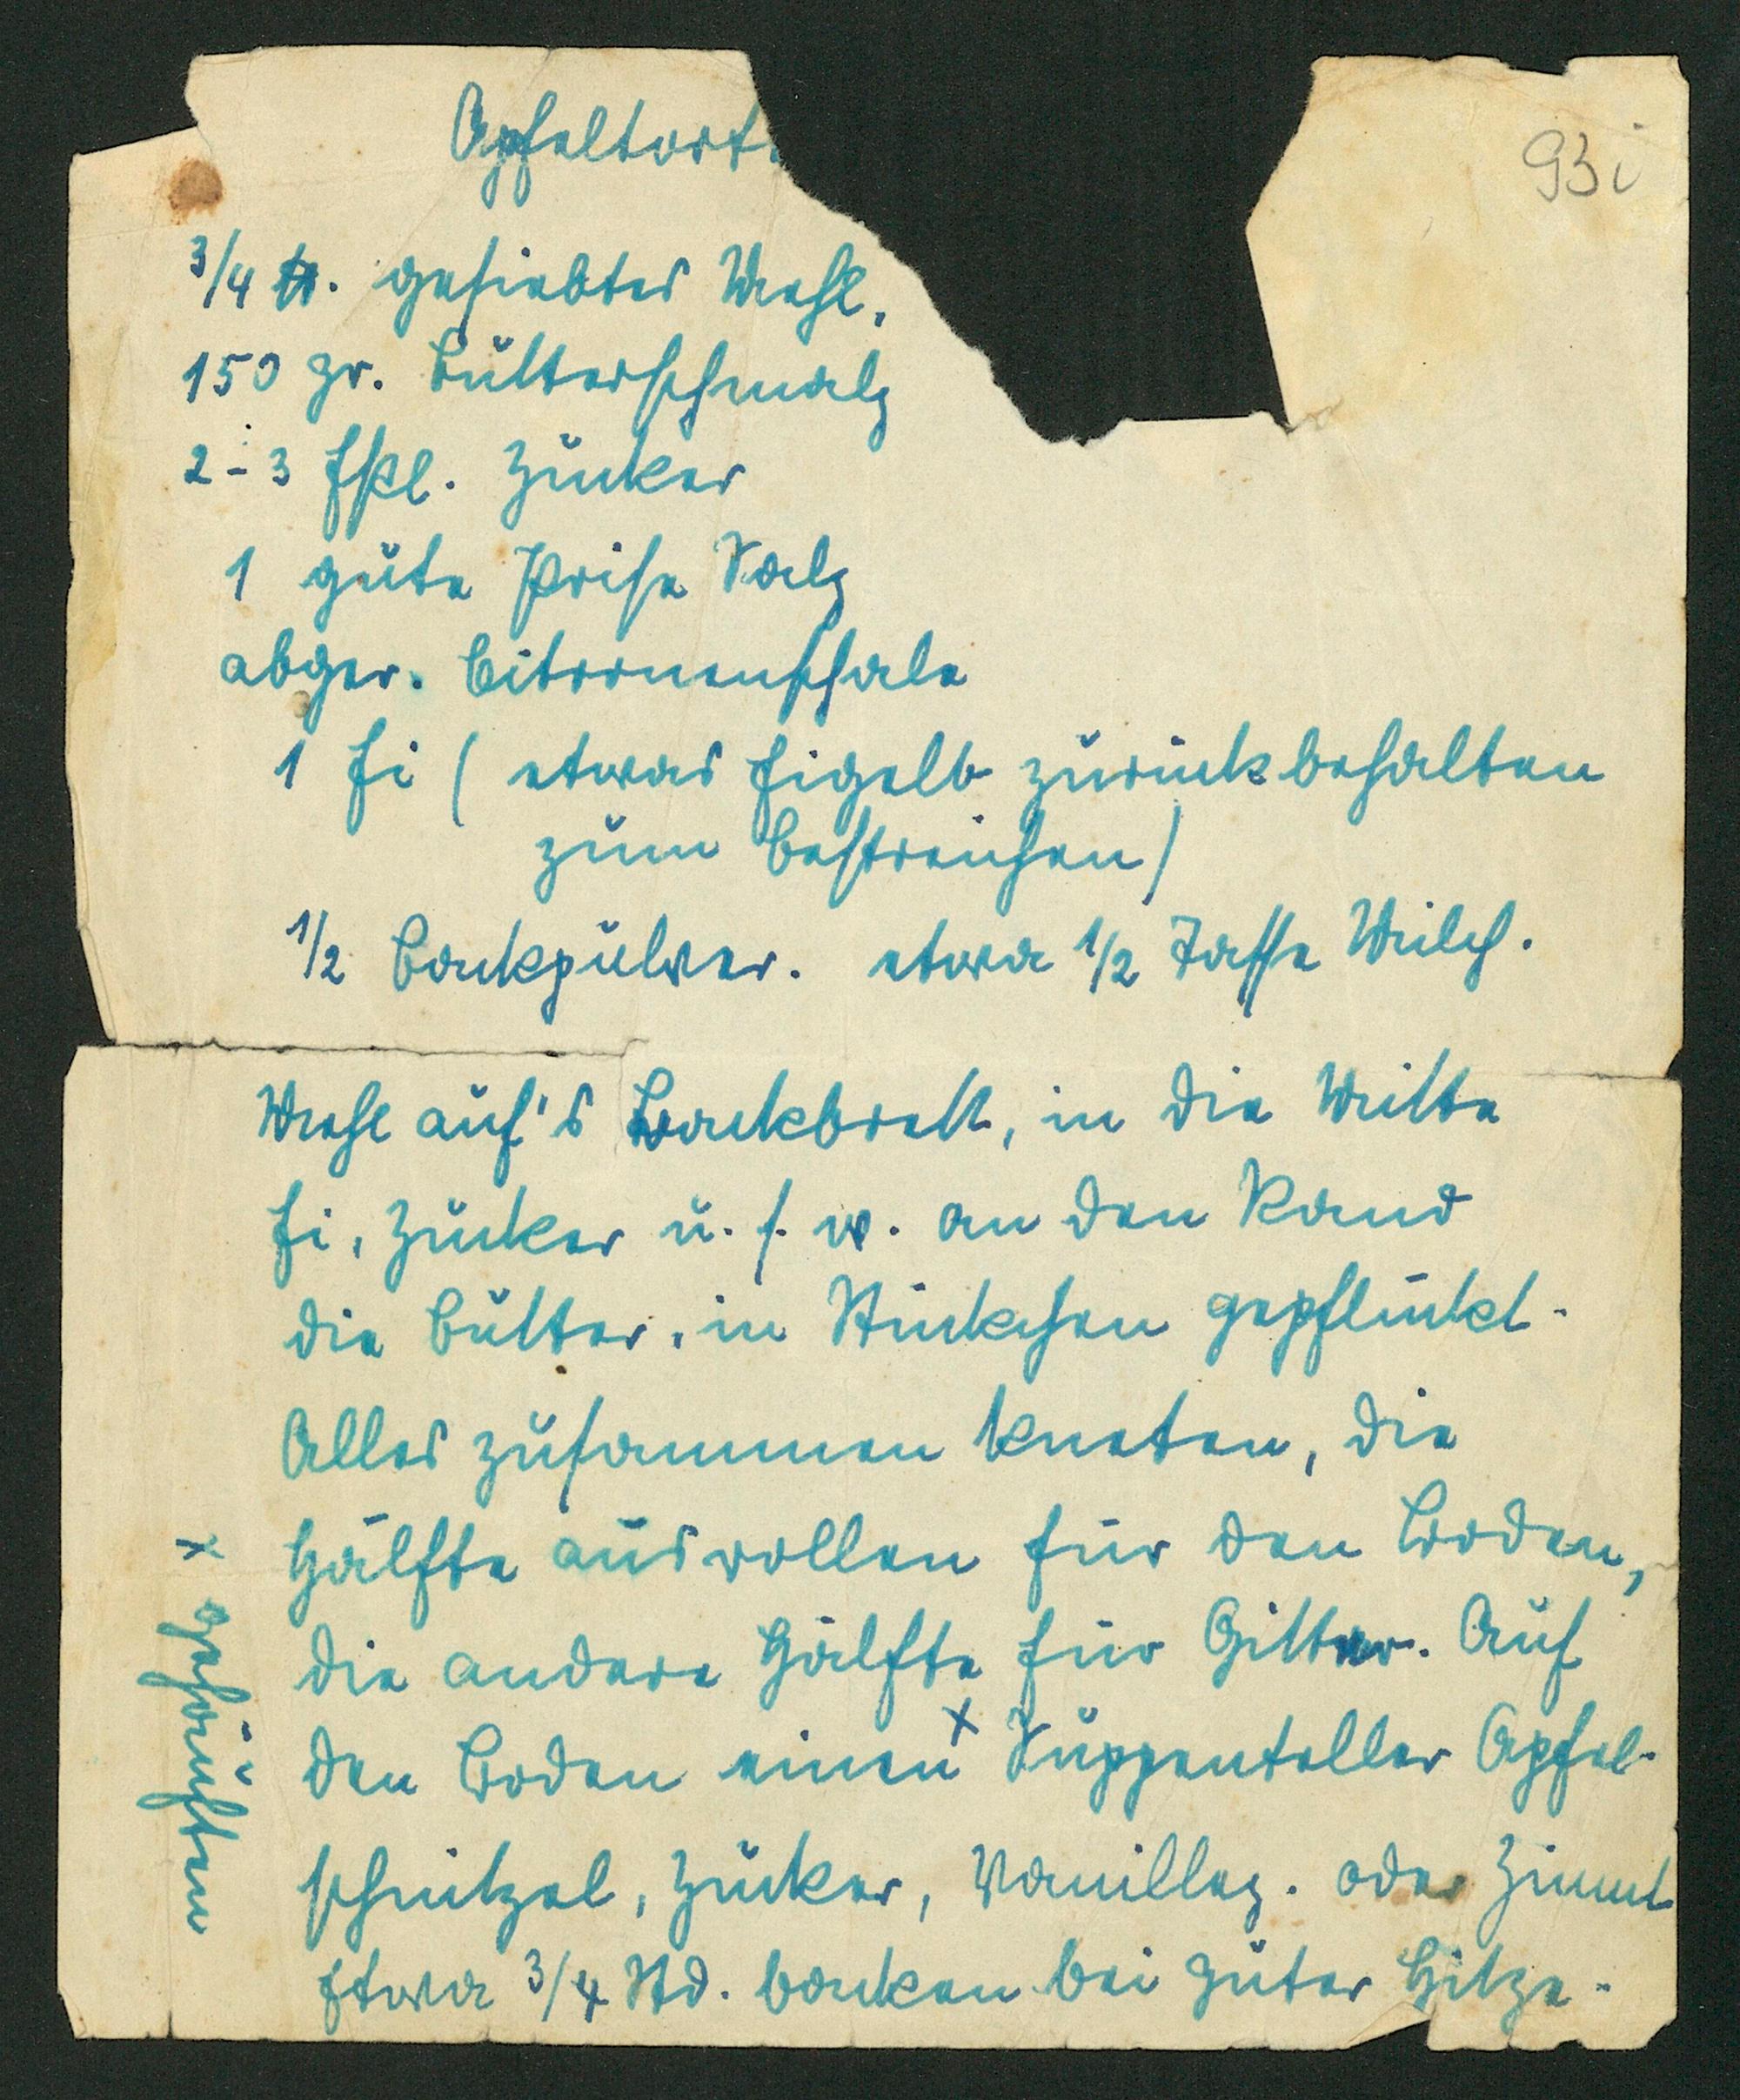 Apfeltort
93i
3/4 ℔. gesiebtes Mehl,
150 gr. Butterschmalz
2-3 Eßl. Zucker
1 gute Prise Salz
abger. Citronenschale
1 Ei (etwas Eigelb zurückbehalten
zum Bestreichen)
1/2 Backpulver. etwa 1/2 Tasse Milch.
Mehl auf's Backbrett, in die Mitte
Ei, Zucker u. s. w. an den Rand
die Butter, in Stückchen gepflückt.
Alles zusammen kneten, die
Hälfte ausrollen für den Boden,
die andere Hälfte für Gitter. Auf
den Boden einen x Suppenteller Apfel-
schnitzel, Zucker, Vanillez. oder Zimmt
Etwa 3/4 Std. backen bei guter Hitze.
x gehäuften